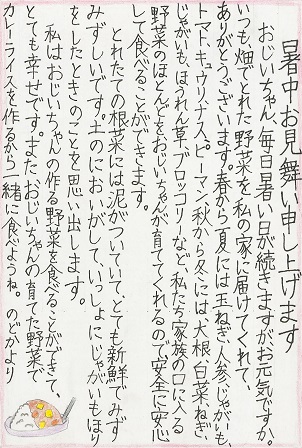 暑中お見舞い申し上げます
おじいちゃん、毎日暑い日が続きますがお元気ですか。
いつも畑でとれた野菜を私の家に届けてくれて、
ありがとうございます。春から夏には玉ねぎ、人参、じゃがいも、
トマト、キュウリ、ナス、ピーマン、秋から冬には大根、白菜、ねぎ、
じゃがいも、ほうれん草、ブロッコリーなど、私たち家族の口に入る
野菜のほとんどをおじいちゃんが育ててくれるので、安全に安心
して食べることができます。
とれたての根菜には泥がついていて、とても新鮮でみず
みずしいです。土のにおいがして、いっしょにじゃがいもほり
をしたときのことを思い出します。
私はおじいちゃんの作る野菜を食べることができて、
とても幸せです。また、おじいちゃんの育てた野菜で
カレーライスを作るから一緒に食べようね。 のどかより